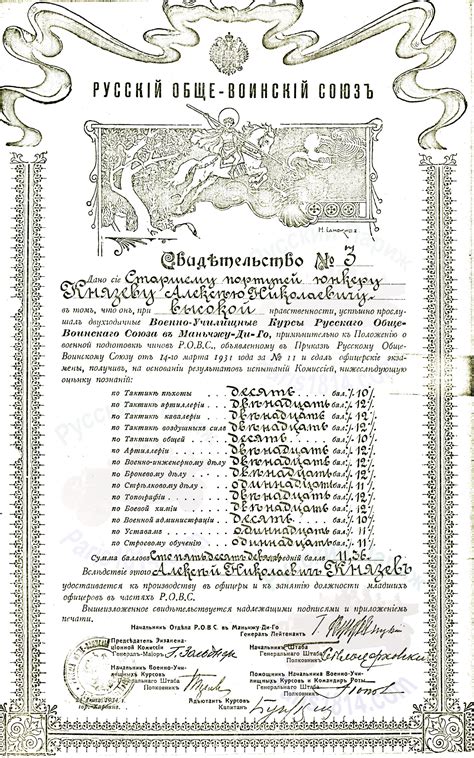 РУССКІЙ ОБЩЕ-ВОИНСКІЙ СОЮЗЪ
Свидѣтельство № 3
Дано сіе Старшему портупей юнкеру
Князеву Алексѣю Николаевичу
въ томъ, что онъ, при высокой нравственности, успѣшно прослу-
шалъ двухгодичные Военно-Училищные Курсы Русскаго Обще-
Воинскаго Союза въ Маньчжу-Ди-Го, примѣнительно къ Положенію о
военной подготовкѣ чиновъ Р.О.В.С., объявленному въ Приказѣ Русскому Обще-
Воинскому Союзу отъ 14-го марта 1931 года за № 11 и сдалъ офицерскіе экза-
мены, получивъ, на основаніи результатовъ испытаній Комиссіей, нижеслѣдующую
оцѣнку познаній:
по Тактикѣ пѣхоты десять бал. 10
по Тактикѣ артиллеріи двѣнадцать бал. 12
по Тактикѣ кавалеріи двѣнадцать бал. 12
по Тактикѣ воздушныхъ силъ двѣнадцать бал. 12
по Тактикѣ общей десять бал. 10
по Артиллеріи двѣнадцать бал. 12
по Военно-инженерному дѣлу двѣнадцать бал. 12
по Броневому дѣлу двѣнадцать бал. 12
по Стрѣлковому дѣлу одиннадцать бал. 11
по Топографіи двѣнадцать бал. 12
по Боевой химіи двѣнадцать бал. 12
по Военной администраціи десять бал. 10
по Уставамъ одиннадцать бал. 11
по Строевому обученію одиннадцать бал. 11
Сумма балловъ Сто пятьдесят девять средній баллъ 11.36.
Вслѣдствіе этого Алексѣй Николаевичъ Князевъ
удостаивается къ производству въ офицеры и къ занятію должности младшихъ
офицеровъ въ частяхъ Р.О.В.С.
Вышеизложенное свидѣтельствуется надлежащими подписями и приложеніемъ
печати.
Начальникъ Отдѣла Р.О.В.С. въ Маньчжу-Ди-Го
Генералъ Лейтенантъ
Предсѣдатель Экзамена-
ціонной Комиссіи
Генералъ-Маіоръ
Начальникъ Штаба
Генеральнаго Штаба
Полковникъ
Начальникъ Военно-Учи-
лищныхъ Курсовъ
Генеральнаго Штаба
Полковникъ
Помощникъ Начальника Военно-Учи-
лищныхъ Курсовъ и Командиръ Роты
Полковникъ
1934 г.
гор. Харбинъ.
Адъютантъ Курсовъ
Капитанъ